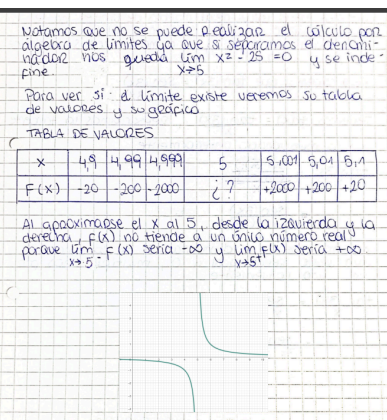 Notamos que no se puede realizar el cálculo por
álgebra de límites ya que si separamos el denomi-
nador nos queda lim x² - 25 = 0 y se inde-
fine. x→5
Para ver si el límite existe veremos su tabla
de valores y su gráfico
TABLA DE VALORES
X 4,9 4,99 4,999 5 5,001 5,01 5,1
F(X) -20 -200 -2000 ¿? +2000 +200 +20
Al aproximarse el X al 5, desde la izquierda y la
derecha, F(X) no tiende a un único número real
porque lim F(X) sería -∞ y lim F(X) sería +∞
x→5⁻ x→5⁺